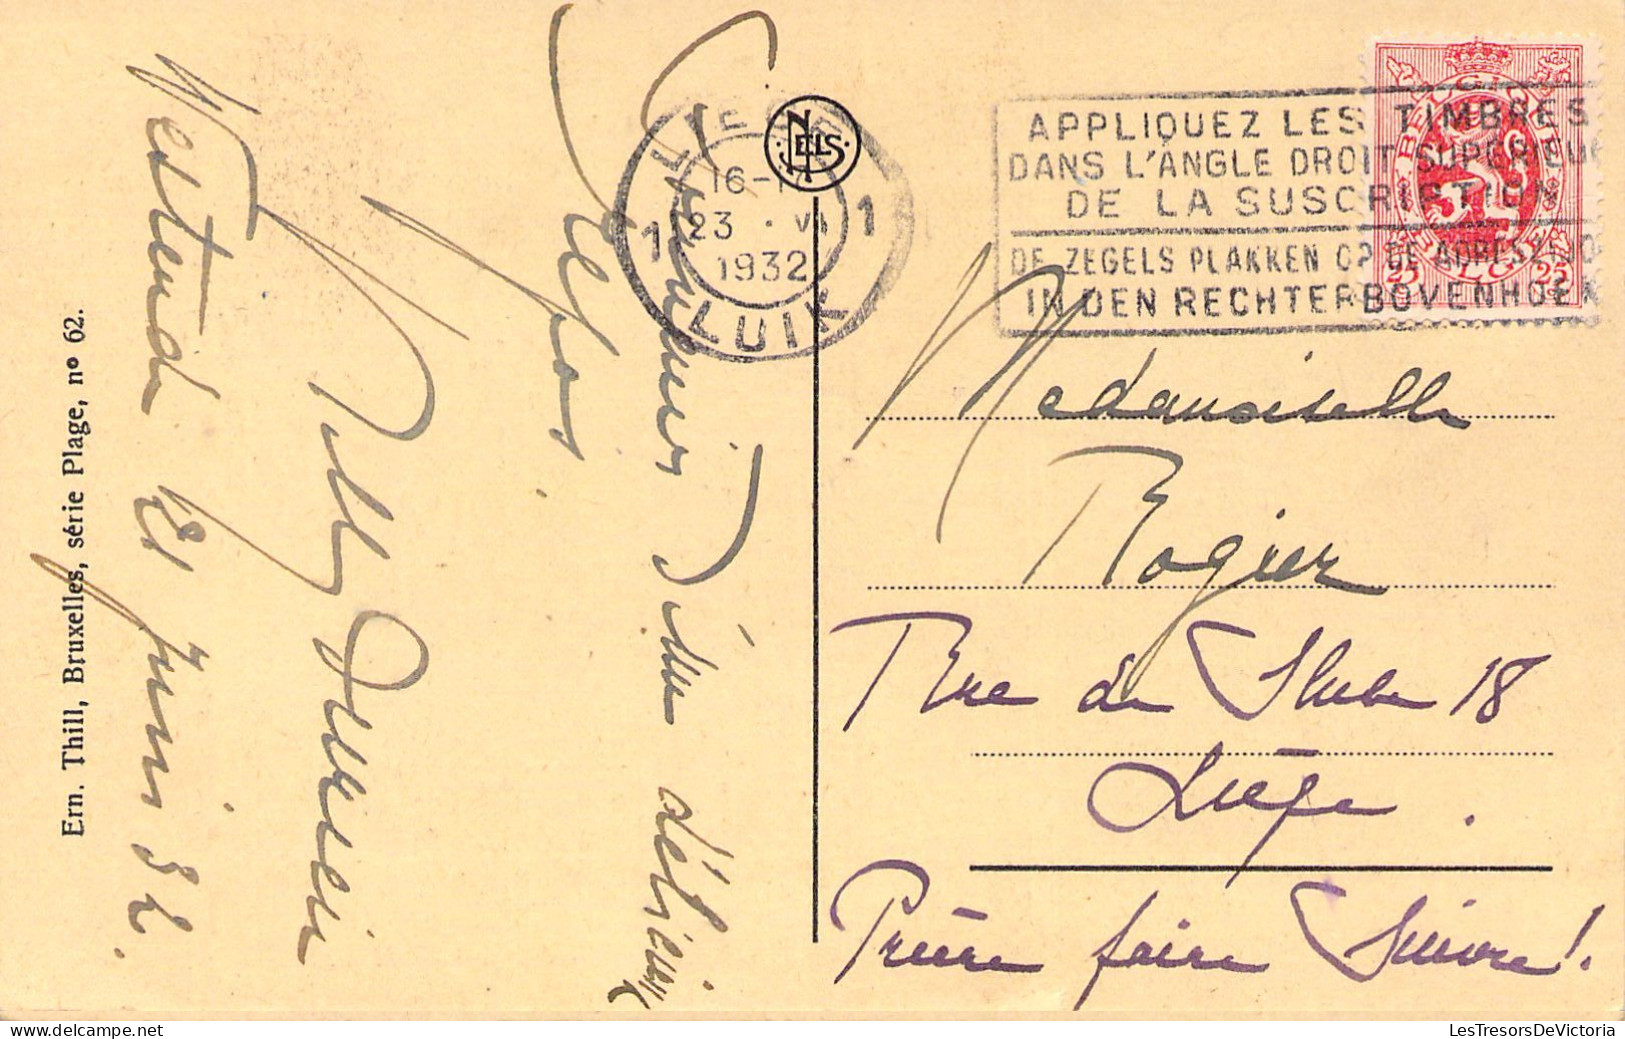 Souvenirs d'un délicieux
repos
Westende 21 Juin 32.
Ern. Thill, Bruxelles, série Plage, nº 62.
NELS
LIEGE
16-17
23 · VI
1932
1 1
LUIK
APPLIQUEZ LES TIMBRES
DANS L'ANGLE DROIT SUPERIEUR
DE LA SUSCRIPTION
DE ZEGELS PLAKKEN OP DE ADRESZIJDE
IN DEN RECHTERBOVENHOEK
BELGIQUE
BELGIE
25 25
Mademoiselle
Rogier
Rue de 18
Liège.
Prière faire Suivre!.
LesTresorsDeVictoria